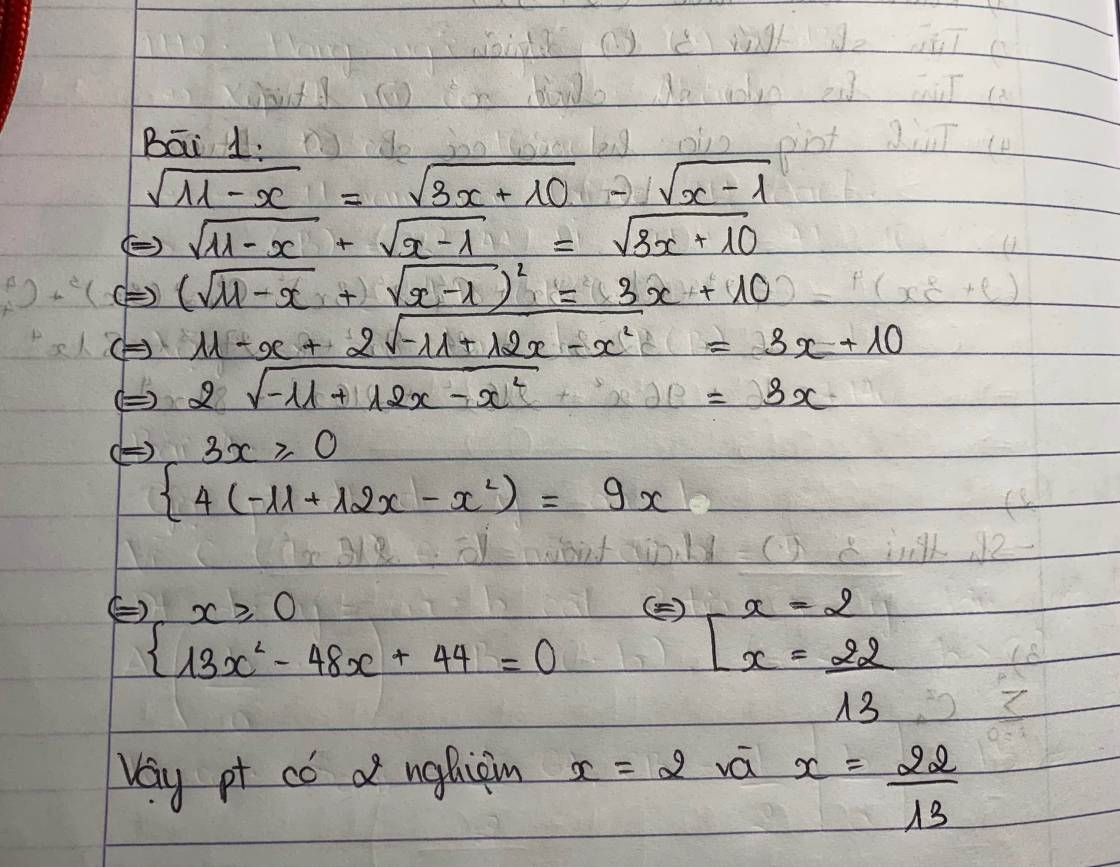 Bài 1:
√11 - x = √3x + 10 - √x - 1
⇔ √11 - x + √x - 1 = √3x + 10
⇔ (√11 - x + √x - 1)² = 3x + 10
⇔ 11 - x + 2√-11 + 12x - x² = 3x + 10
⇔ 2 √-11 + 12x - x² = 3x
⇔ 3x ≥ 0
{ 4 (-11 + 12x - x²) = 9x
⇔ x ≥ 0 ⇔ x = 2
{ 13x² - 48x + 44 = 0 [ x = 22/13
Vậy pt có 2 nghiệm x = 2 và x = 22/13